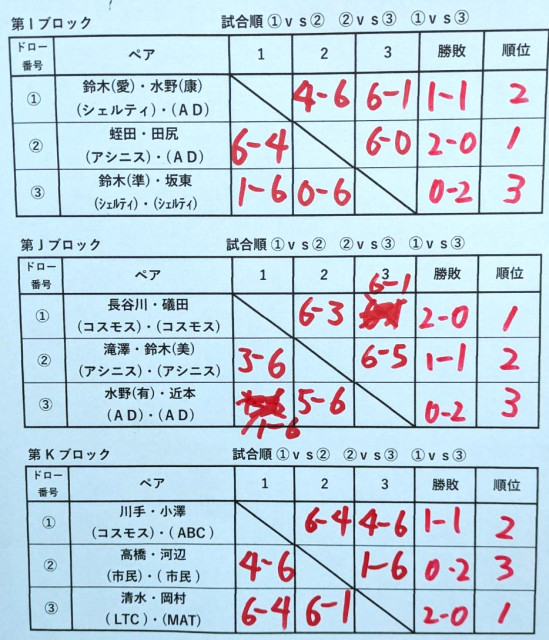 第Iブロック 試合順 ①vs② ②vs③ ①vs③
ドロー番号 ペア 1 2 3 勝敗 順位
① 鈴木(愛)・水野(康) 4-6 6-1 1-1 2
(シェルティ)・(AD)
② 蛭田・田尻 6-4 6-0 2-0 1
(アシニス)・(AD)
③ 鈴木(準)・坂東 1-6 0-6 0-2 3
(シェルティ)・(シェルティ)
第Jブロック 試合順 ①vs② ②vs③ ①vs③
ドロー番号 ペア 1 2 3 勝敗 順位
① 長谷川・礒田 6-3 6-1 2-0 1
(コスモス)・(コスモス)
② 滝澤・鈴木(美) 3-6 6-5 1-1 2
(アシニス)・(アシニス)
③ 水野(有)・近本 1-6 5-6 0-2 3
(AD)・(AD)
第Kブロック 試合順 ①vs② ②vs③ ①vs③
ドロー番号 ペア 1 2 3 勝敗 順位
① 川手・小澤 6-4 4-6 1-1 2
(コスモス)・(ABC)
② 高橋・河辺 4-6 1-6 0-2 3
(市民)・(市民)
③ 清水・岡村 6-4 6-1 2-0 1
(LTC)・(MAT)